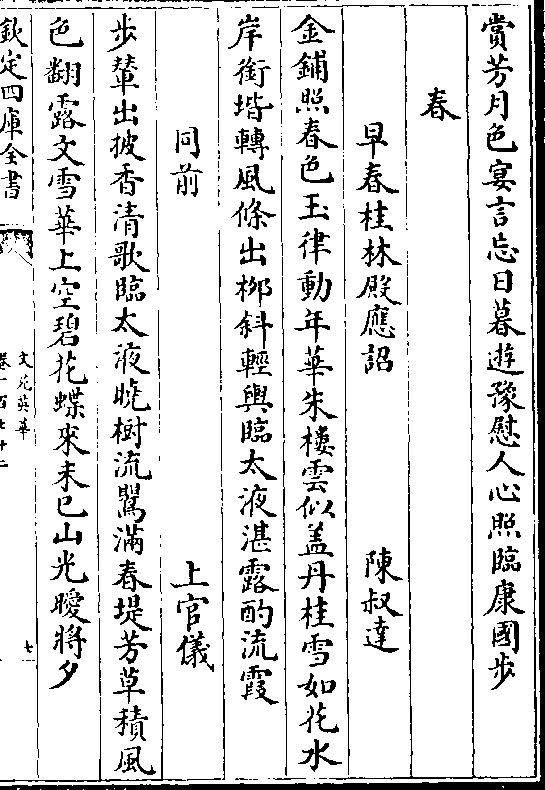 賞芳月色宴言忘日暮遊豫慰人心照臨康國步
春
早春桂林殿應詔 陳叔達
金鋪照春色玉律動年華朱樓雲似盖丹桂雪如花水
岸銜堦轉風條出栁斜輕輿臨太液湛露酌流霞
同前 上官儀
步輦出披香清歌臨太液曉樹流鸎滿春堤芳草積風
色翻露文雪華上空碧花蝶來未已山光曖將夕
欽定四庫全書
文苑英華
卷一百七十二
七